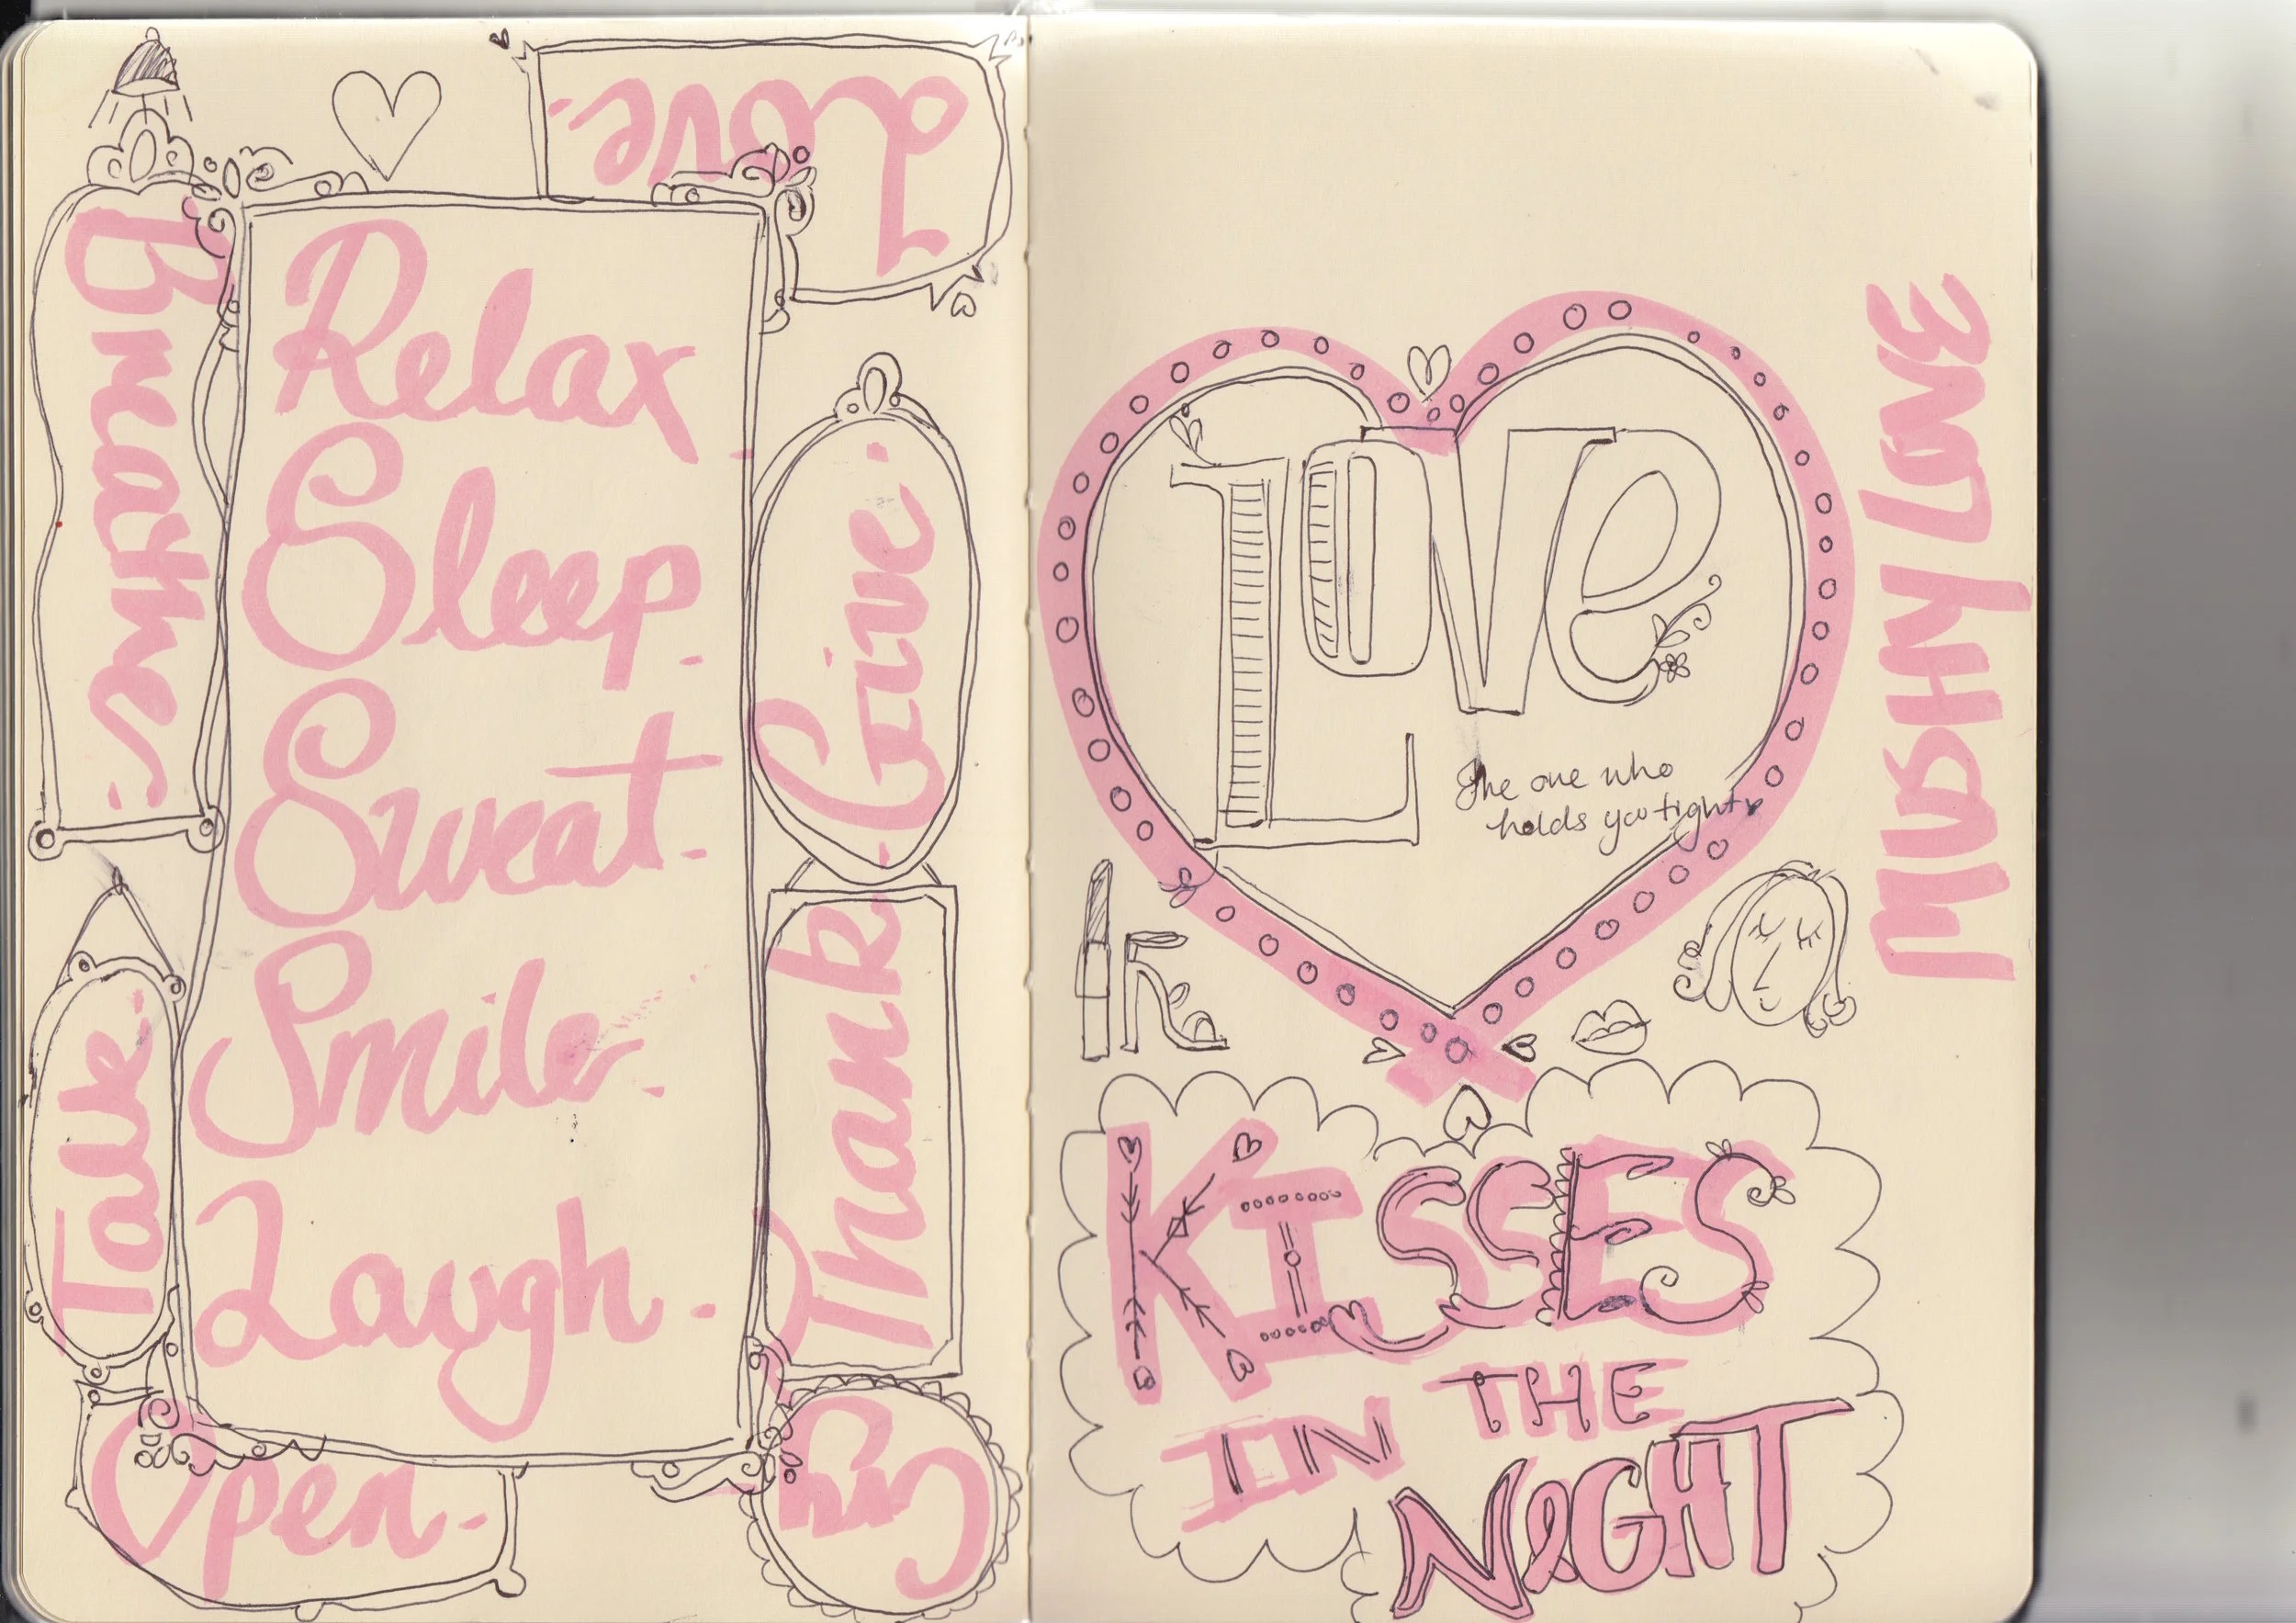 Love.
Breathe.
Relax.
Sleep.
Sweat.
Smile.
Laugh.
Give.
Thank.
Talk.
Open.
Cry
LOVe
The one who
holds you tight
MUSHY LOVE
KISSES
IN THE
NIGHT